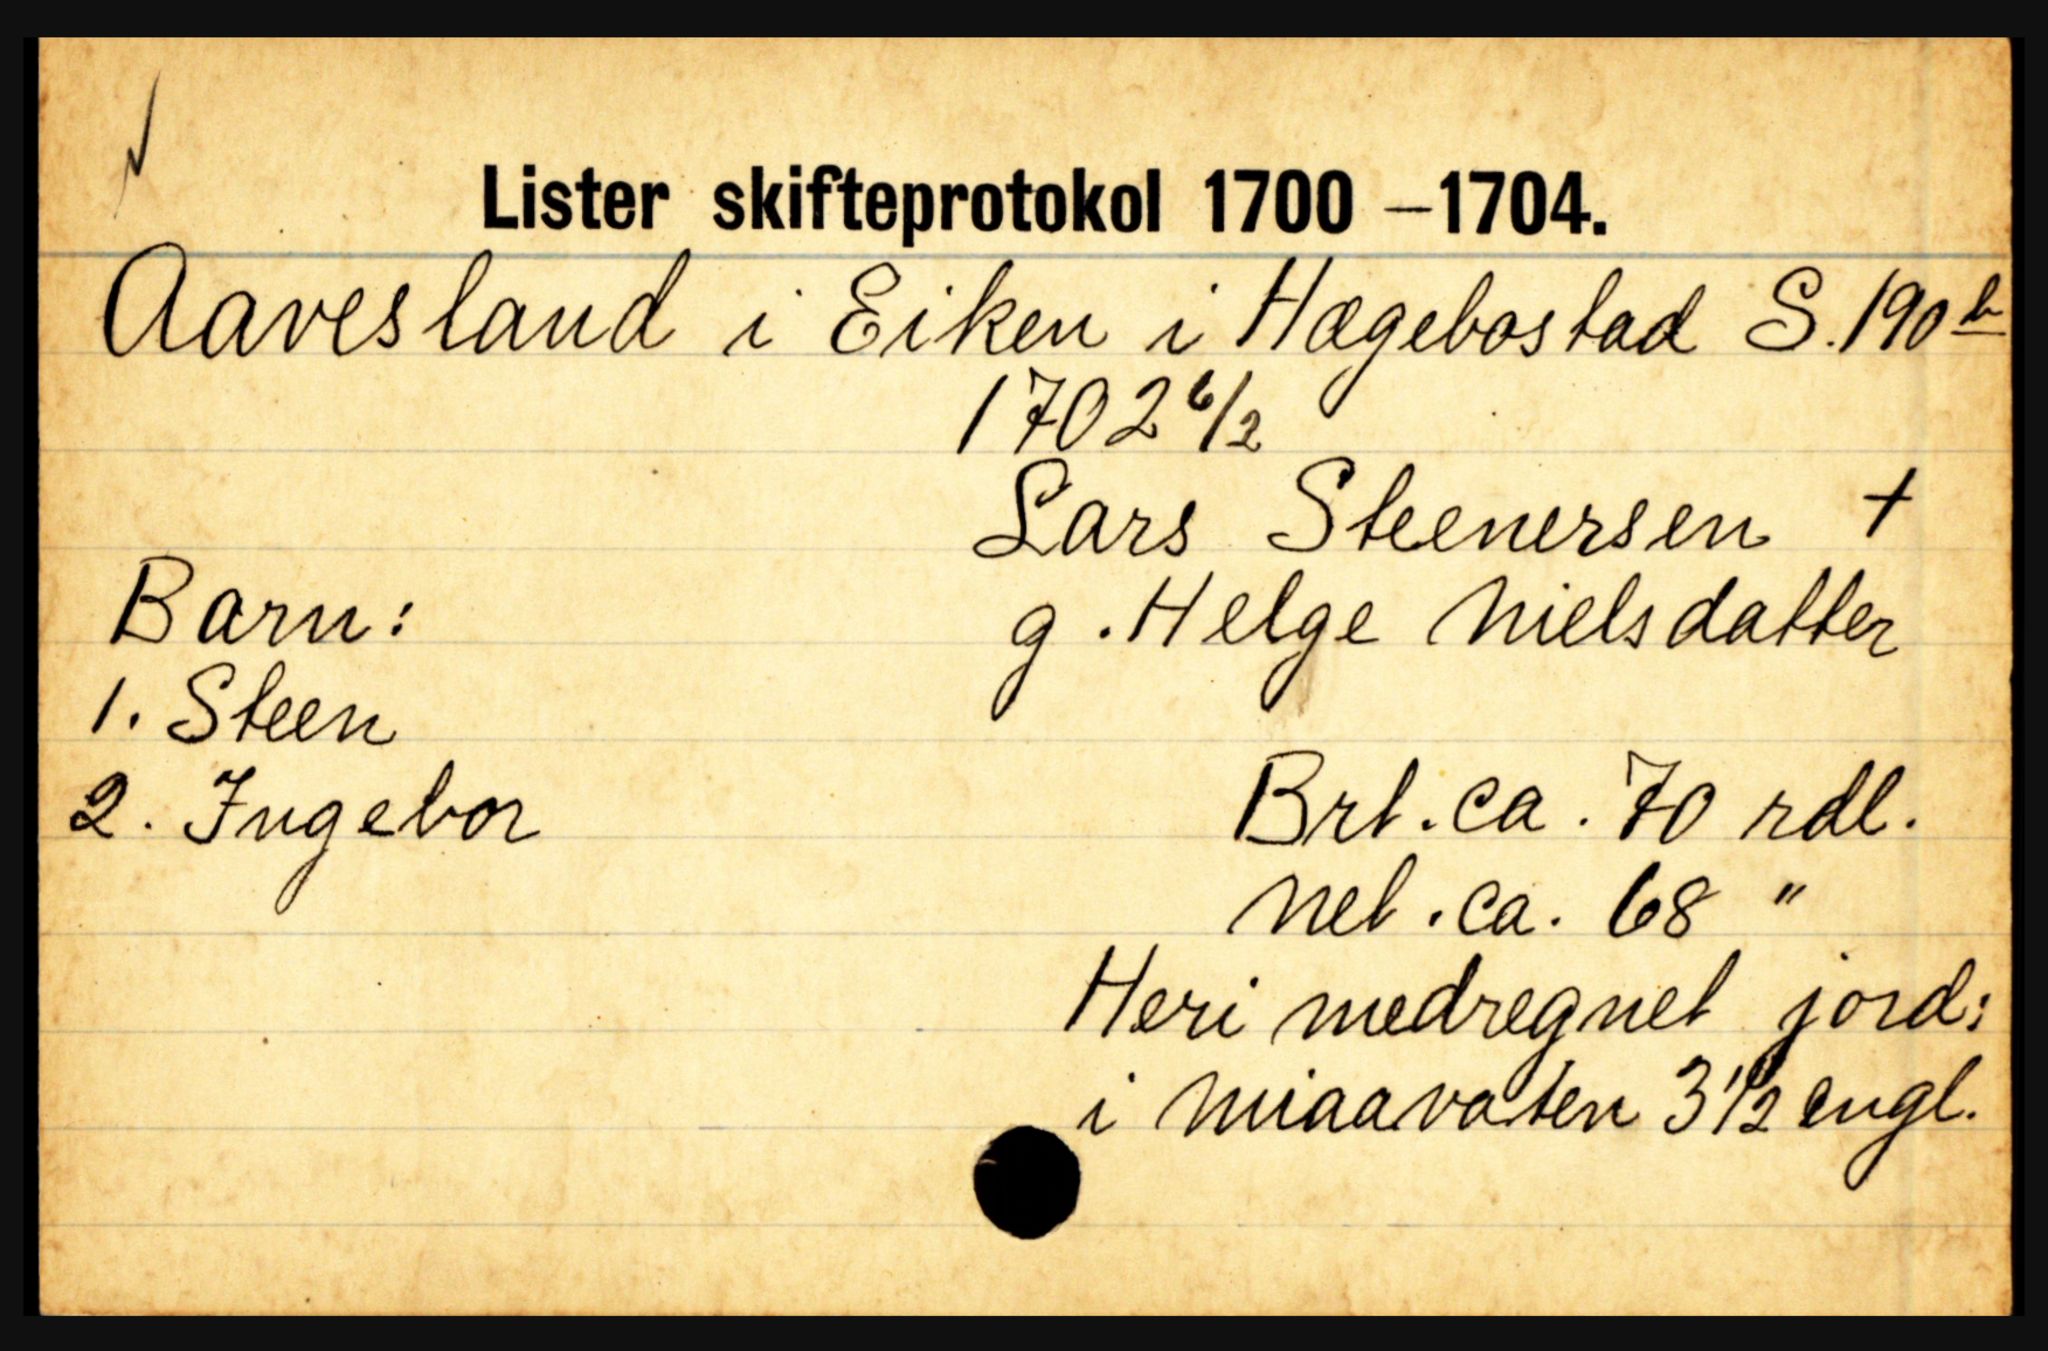 Lister skifteprotokol 1700 – 1704.
Aavesland i Eiken i Hægebostad S. 190 b
1702 6/2
Lars Steenersen +
g. Helge Nielsdatter
Barn:
1. Steen
2. Ingebor
Brt. ca. 70 rdl.
Net. ca. 68 "
Heri medregnet jord:
i Miaavaten 3 1/2 engl.